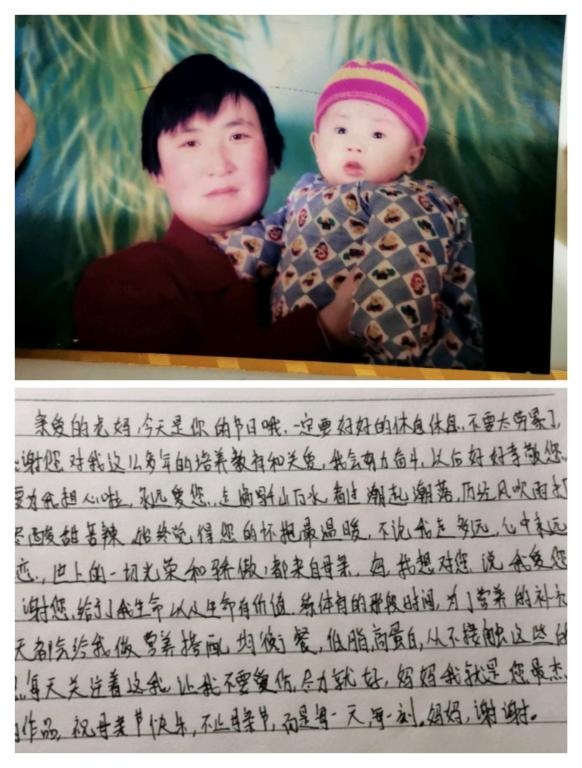 亲爱的老妈，今天是你的节日哦，一定要好好的休息休息，不要太劳累了，
谢您对我这么多年的培养教育和关爱，我会努力奋斗，以后好好孝敬您。
要为我担心啦，永远爱您。走遍千山万水，看过潮起潮落，历经风吹雨打
酸甜苦辣 始终觉得您的怀抱最温暖，不论我走多远，心中永远
恋，世上的一切光荣和骄傲！都来自母亲，妈，我想对您说 我爱您
谢您，给了我生命以及生命有价值，练体育的那段时间，为了营养的补充
天都会给我做营养搭配 均衡餐，低脂，高蛋白，从不接触这些的
，每天关注着这我，让我不要受伤，尽力就好，妈妈我就是您最杰
作品，祝母亲节快乐，不止母亲节，而是每一天，每一刻。妈妈，谢谢。